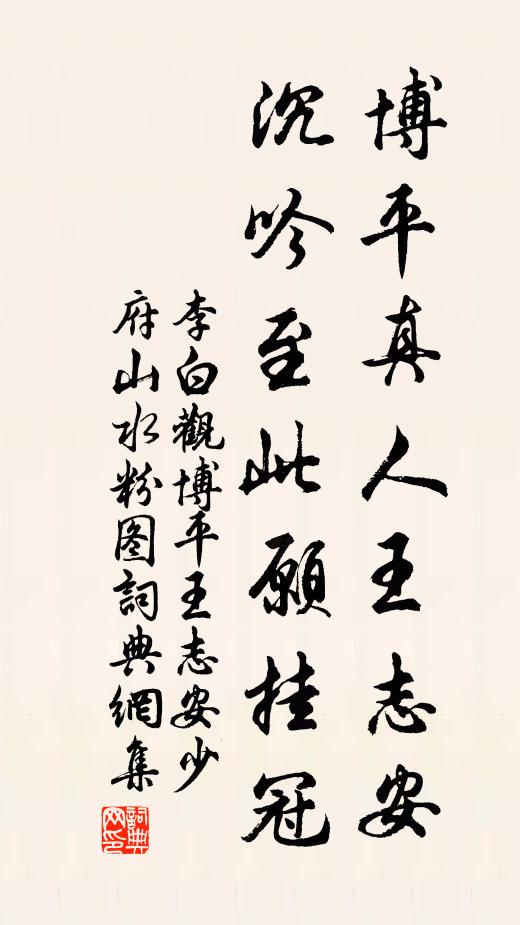 博平真人王志安
沉吟至此願挂冠
李白觀博平王志安少
府山水粉图詞典網集